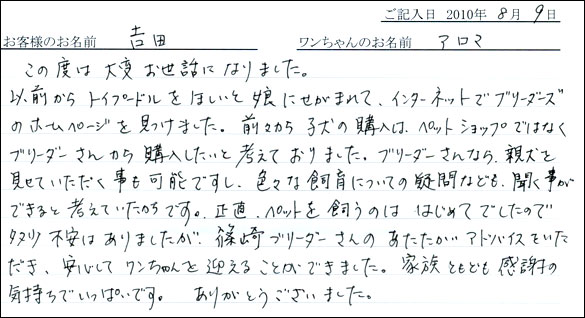 ご記入日 2010年 8月 9日
お客様のお名前 吉田 ワンちゃんのお名前 アロマ
この度は大変お世話になりました。
以前からトイプードルをほしいと娘にせがまれて、インターネットでブリーダーズ
のホームページを見つけました。前々から子犬の購入は、ペットショップではなく
ブリーダーさんから購入したいと考えておりました。ブリーダーさんなら、親犬を
見せていただく事も可能ですし、色々な飼育についての疑問なども、聞く事が
できると考えていたからです。正直、ペットを飼うのははじめてでしたので
多少不安はありましたが、篠崎ブリーダーさんのあたたかいアドバイスをいた
だき、安心してワンちゃんを迎えることができました。家族ともども感謝の
気持ちでいっぱいです。 ありがとうございました。